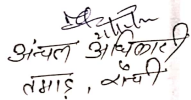 अंचल अधिकारी
तमाड़, राँची